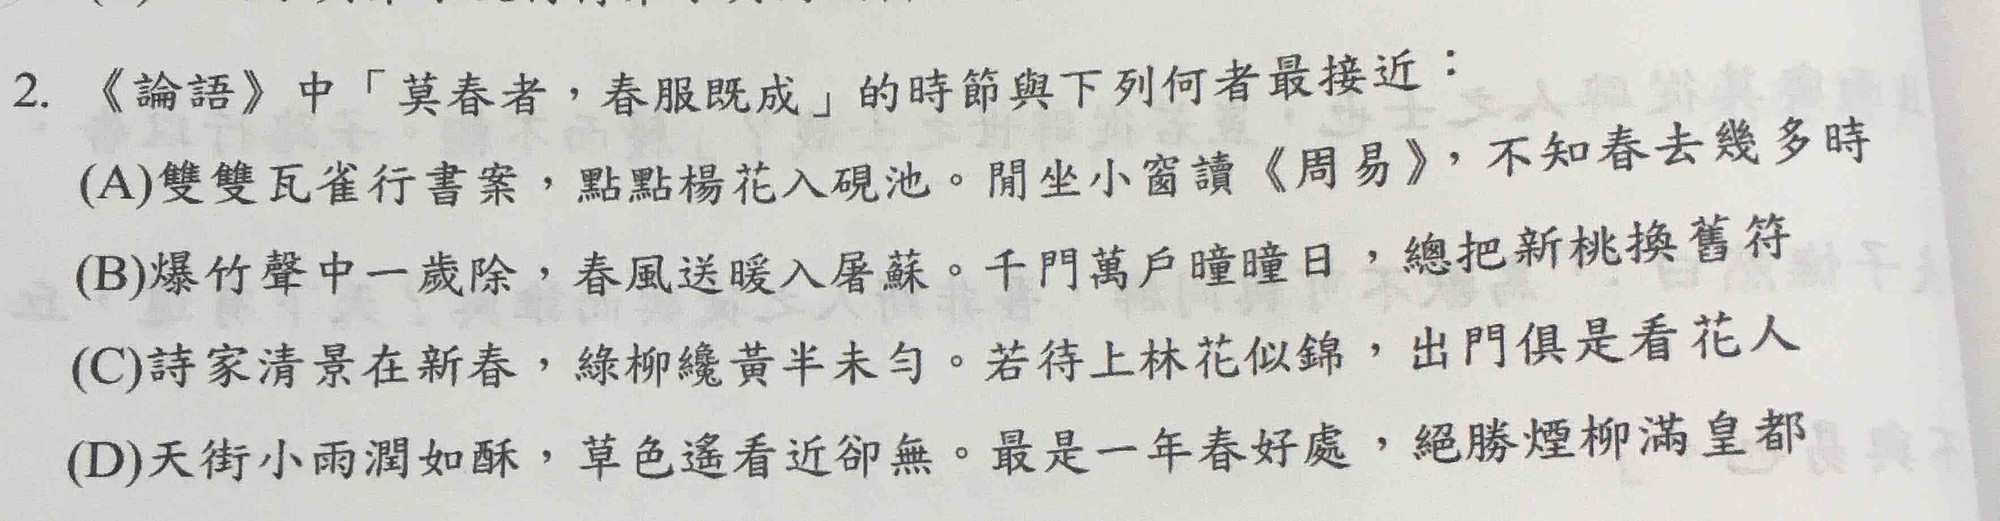 2. 《論語》中「莫春者，春服既成」的時節與下列何者最接近：
(A)雙雙瓦雀行書案，點點楊花入硯池。閒坐小窗讀《周易》，不知春去幾多時
(B)爆竹聲中一歲除，春風送暖入屠蘇。千門萬戶曈曈日，總把新桃換舊符
(C)詩家清景在新春，綠柳纔黃半未勻。若待上林花似錦，出門俱是看花人
(D)天街小雨潤如酥，草色遙看近卻無。最是一年春好處，絕勝煙柳滿皇都